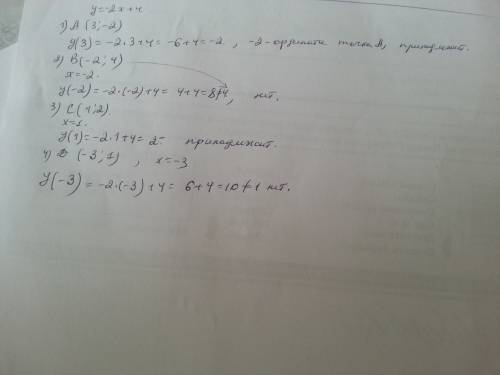 y=-2x+4
1) A (3;-2)
y(3) = -2·3+4 = -6+4=-2, -2-ордината точки А, принадлежит.
2) B(-2; 4)
x=-2.
y(-2) = -2·(-2)+4= 4+4=8≠4, нет.
3) C(1;2).
x=1.
y(1)=-2·1+4=2- принадлежит.
4) D (-3;1), x=-3
y(-3) = -2·(-3)+4= 6+4=10≠1 нет.